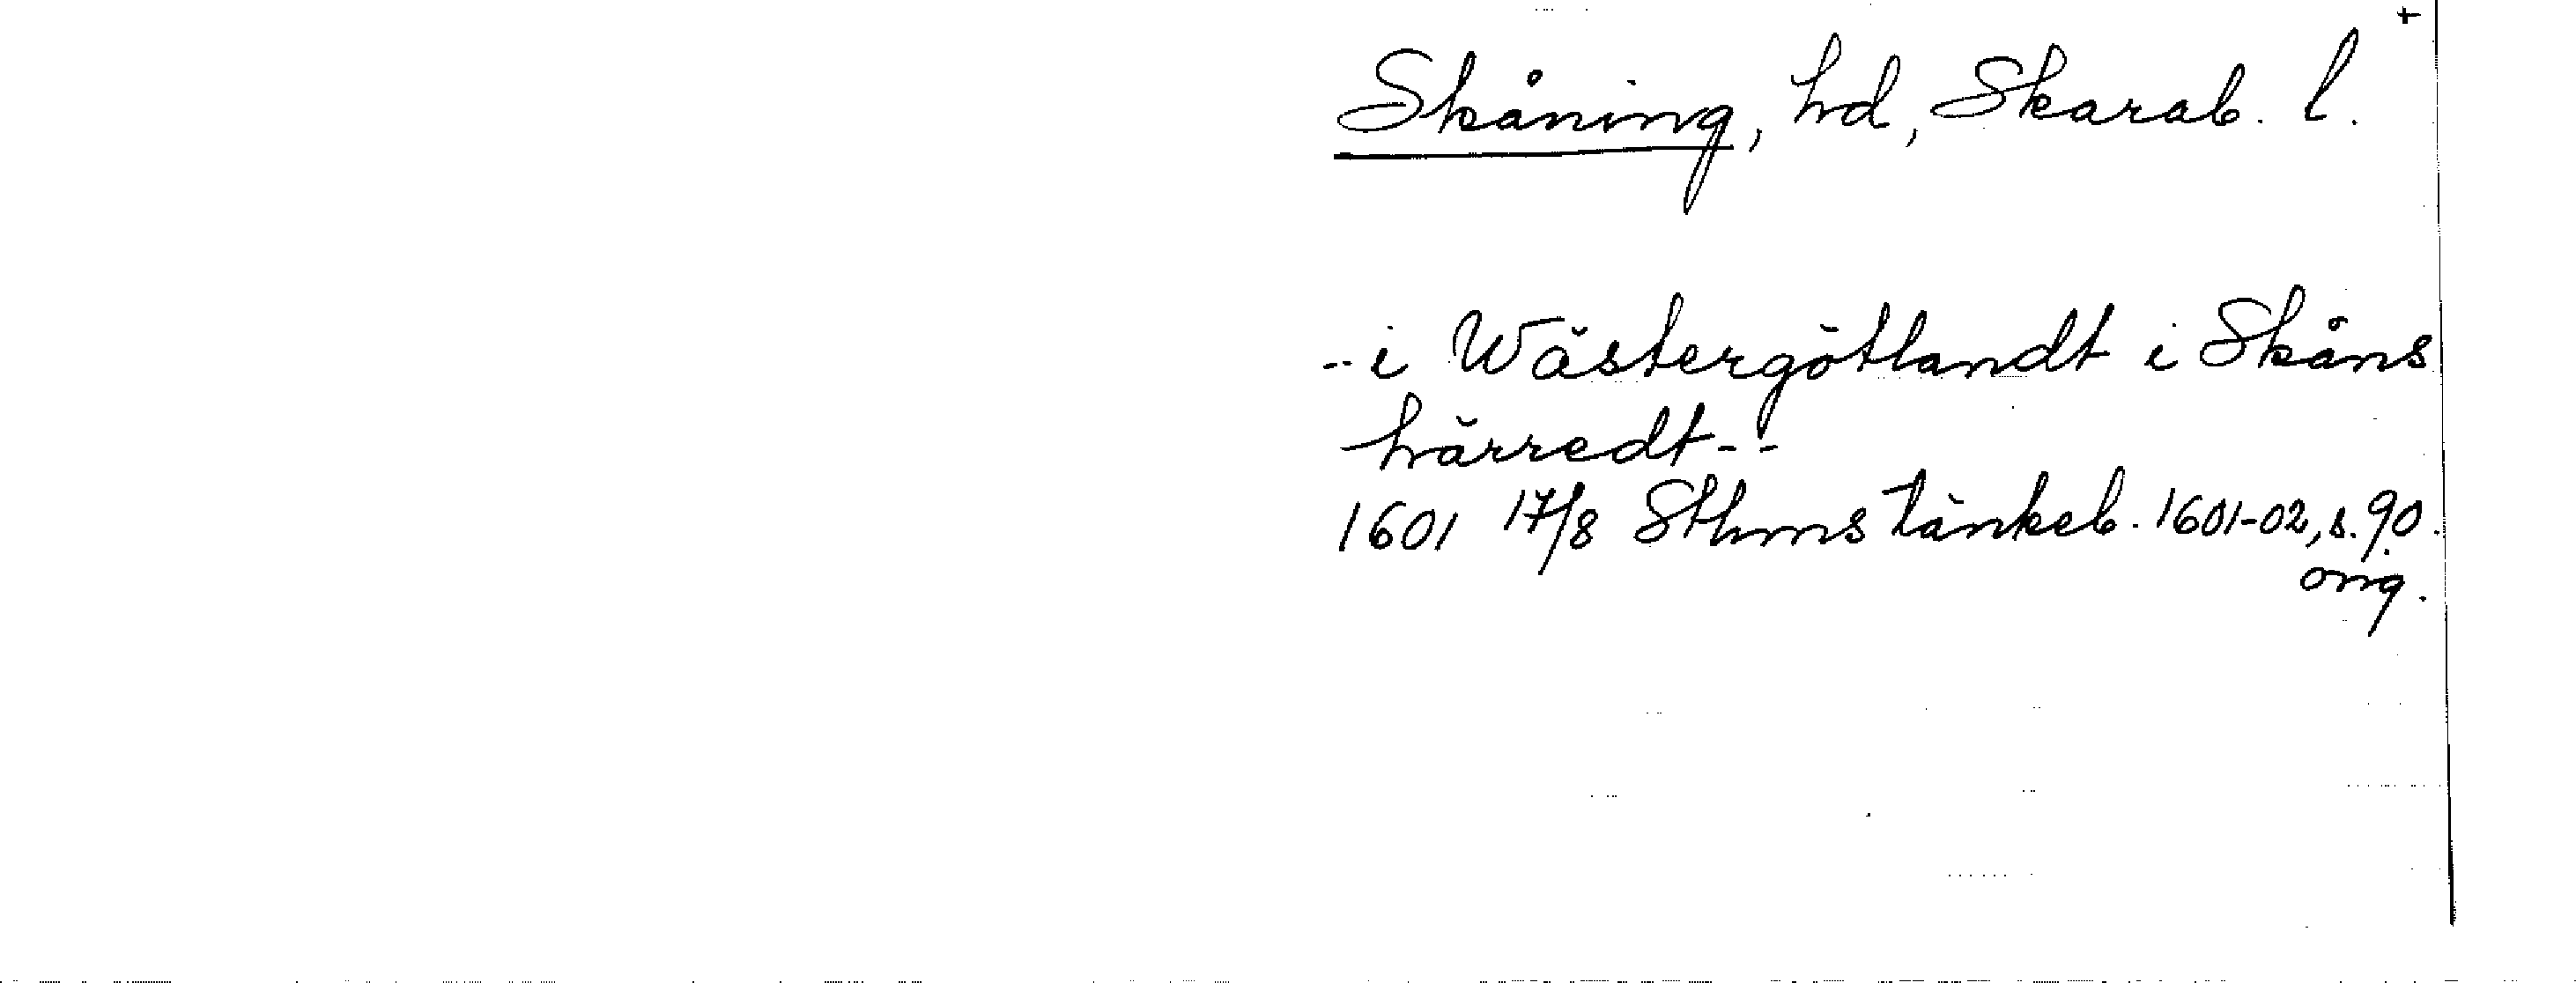 +
Skåning, hd, Skarab. l.
-- i Wästergötlandt i Skåns
härredt--
1601 17/8 Sthms tänkeb. 1601-02, s. 90.
orig.